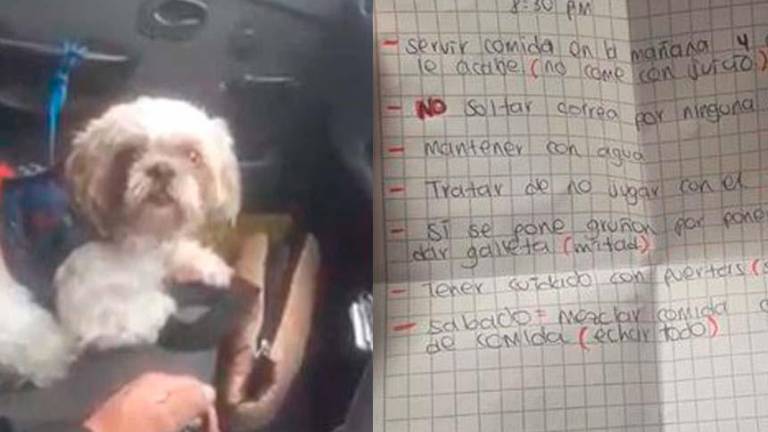 8:30 PM
- servir comida en la mañana y
le acabe (no come con juicio)
- NO soltar correa por ninguna
- mantener con agua
- Tratar de no jugar con el
- si se pone gruñon por pone
dar galleta (mitad)
- Tener cuidado con puertas (s
- sabado = mezclar comida
de komida (echar todo)